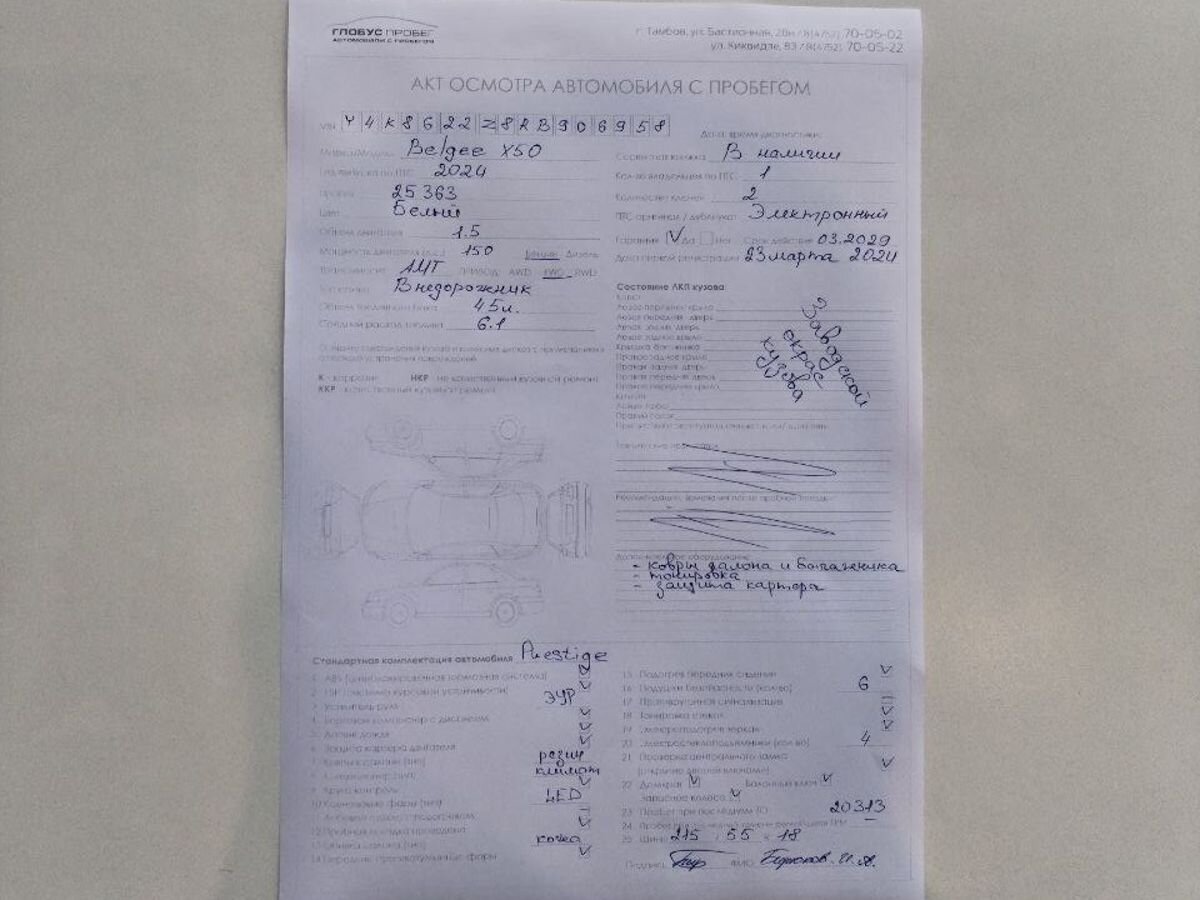 ГЛОБУС ПРОБЕГ
АВТОМОБИЛИ С ПРОБЕГОМ
г. Тамбов, ул. Бастионная, 28и / 8(4752) 70-05-02
ул. Киквидзе, 83 / 8(4752) 70-05-22
АКТ ОСМОТРА АВТОМОБИЛЯ С ПРОБЕГОМ
VIN Y4K8622Z8RB906958
Дата, время диагностики:
Марка/Модель Belgee X50
Год выпуска по ПТС 2024
Пробег 25 363
Цвет Белый
Объем двигателя 1.5
Мощность двигателя (л.с.) 150 Бензин Дизель
Трансмиссия АМТ ПРИВОД: AWD FWD RWD
Тип кузова Внедорожник
Объем топливного бака 45л.
Средний расход топлива 6.1
Сервисная книжка В наличии
Кол-во владельцев по ПТС 1
Количество ключей 2
ПТС оригинал / дубликат Электронный
Гарантия V Да Нет Срок действия 03.2029
Дата первой регистрации 23 марта 2024
К - коррозия НКР - не качественный кузовной ремонт
ККР - качественный кузовной ремонт
Состояние ЛКП кузова:
Капот
Левое переднее крыло
Левая передняя дверь
Левая задняя дверь
Левое заднее крыло
Крышка багажника
Правое заднее крыло
Правая задняя дверь
Правая передняя дверь
Правое переднее крыло
Заводской окрас кузова
Левый порог
Правый порог
Рекомендации, замечания после пробной поездки
Дополнительное оборудование
- ковры салона и багажника
- тонировка
- защита картера
Стандартная комплектация автомобиля Prestige
1 ABS (антиблокировочная тормозная система) V
2 ESP (система курсовой устойчивости) V
3 Усилитель руля ЭУР
4 Бортовой компьютер с дисплеем V
5 Датчик дождя V
6 Защита картера двигателя V
7 Коврики салона (тип) резин
8 Кондиционер (тип) климат
9 Круиз контроль V
10 Ксеноновые фары (тип) LED
13 Обивка салона (тип) кожа
14 Передние противотуманные фары V
15 Подогрев передних сидений V
16 Подушки безопасности (кол-во) 6
17 Противоугонная сигнализация
18 Тонировка стекол V
19 Электроподогрев зеркал V
20 Электростеклоподъемники (кол-во) 4
21 Проверка центрального замка
(открытие дверей ключами) V
22 Домкрат V Балонный ключ V
Запасное колесо V
23 Пробег при последнем ТО 20313
25 Шины 215 / 55 x 18
Подпись ФИО